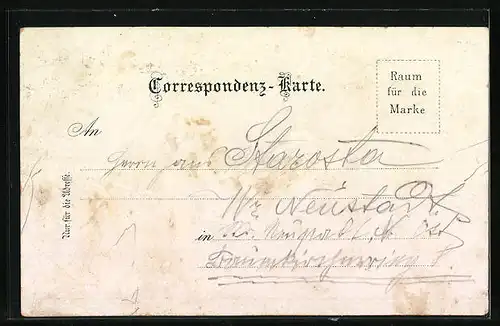 Correspondenz-Karte.
Raum
für die
Marke
An
Herrn Hans Starosta
Wr Neustadt
in Wr. Neustadt
Baumkirchnerring
Nur für die Adresse.